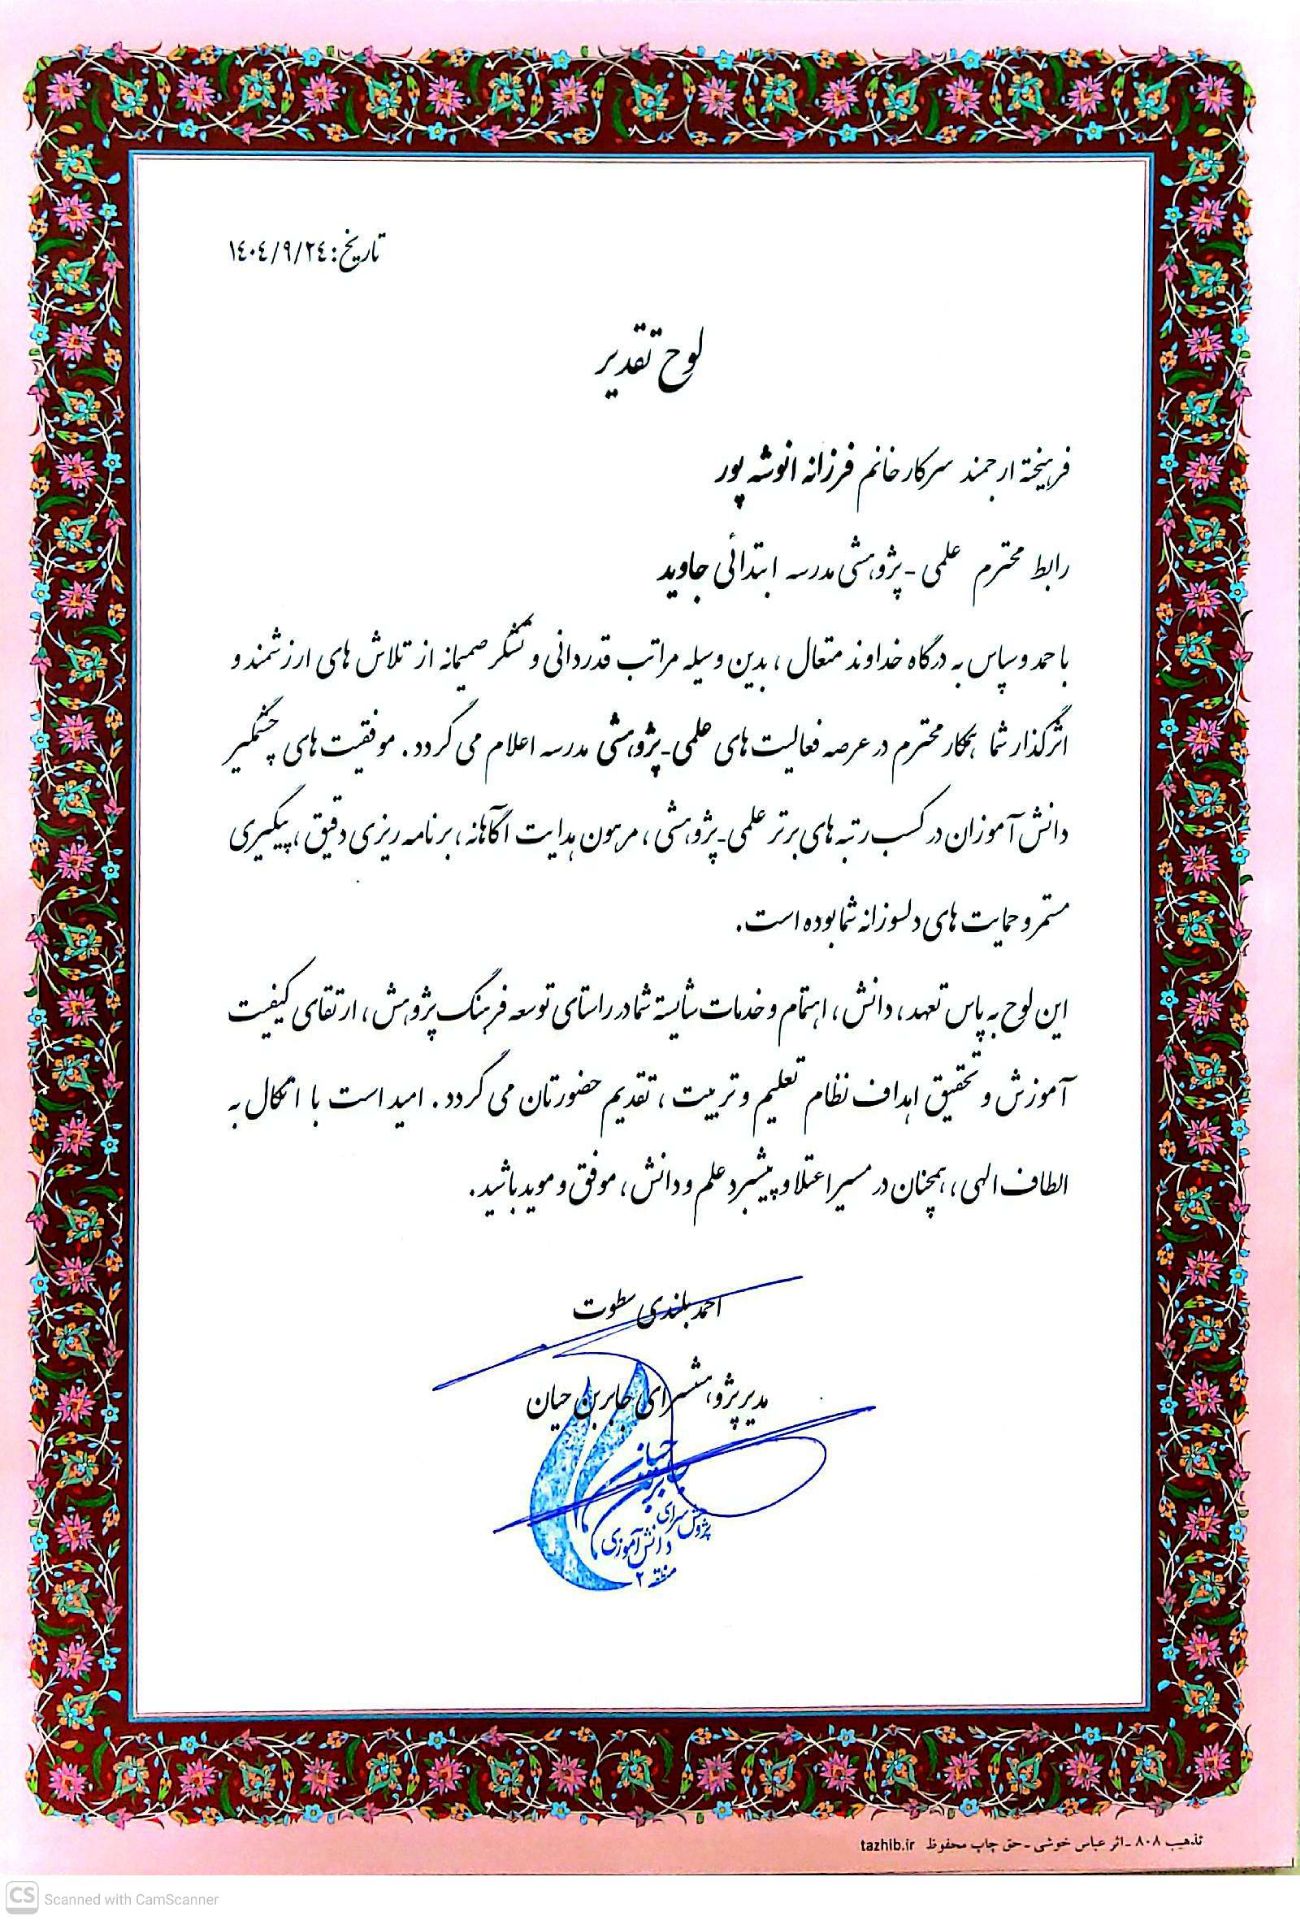 تاریخ: ۱۴۰۴/۹/۲۴
لوح تقدیر
فرهیخته ارجمند سرکار خانم فرزانه انوشه پور
رابط محترم علمی - پژوهشی مدرسه ابتدائی جاوید
با حمد و سپاس به درگاه خداوند متعال ، بدین وسیله مراتب قدردانی و تشکر صمیمانه از تلاش های ارزشمند و
اثرگذار شما همکار محترم در عرصه فعالیت های علمی-پژوهشی مدرسه اعلام می گردد . موفقیت های چشمگیر
دانش آموزان در کسب رتبه های برتر علمی-پژوهشی ، مرهون هدایت آگاهانه ، برنامه ریزی دقیق ، پیگیری
مستمر و حمایت های دلسوزانه شما بوده است.
این لوح به پاس تعهد ، دانش ، اهتمام و خدمات شایسته شما در راستای توسعه فرهنگ پژوهش ، ارتقای کیفیت
آموزش و تحقیق اهداف نظام تعلیم و تربیت ، تقدیم حضورتان می گردد . امید است با اتکال به
الطاف الهی ، همچنان در مسیر اعتلا و پیشبرد علم و دانش ، موفق و موید باشید .
احمد بلندی سطوت
مدیر پژوهشسرای جابر بن حیان
جابر بن حیان
پژوهش سرای
دانش آموزی
منطقه ۲
تذهیب ۸۰۸ - اثر عباس خوشی - حق چاپ محفوظ tazhib.ir
CS Scanned with CamScanner